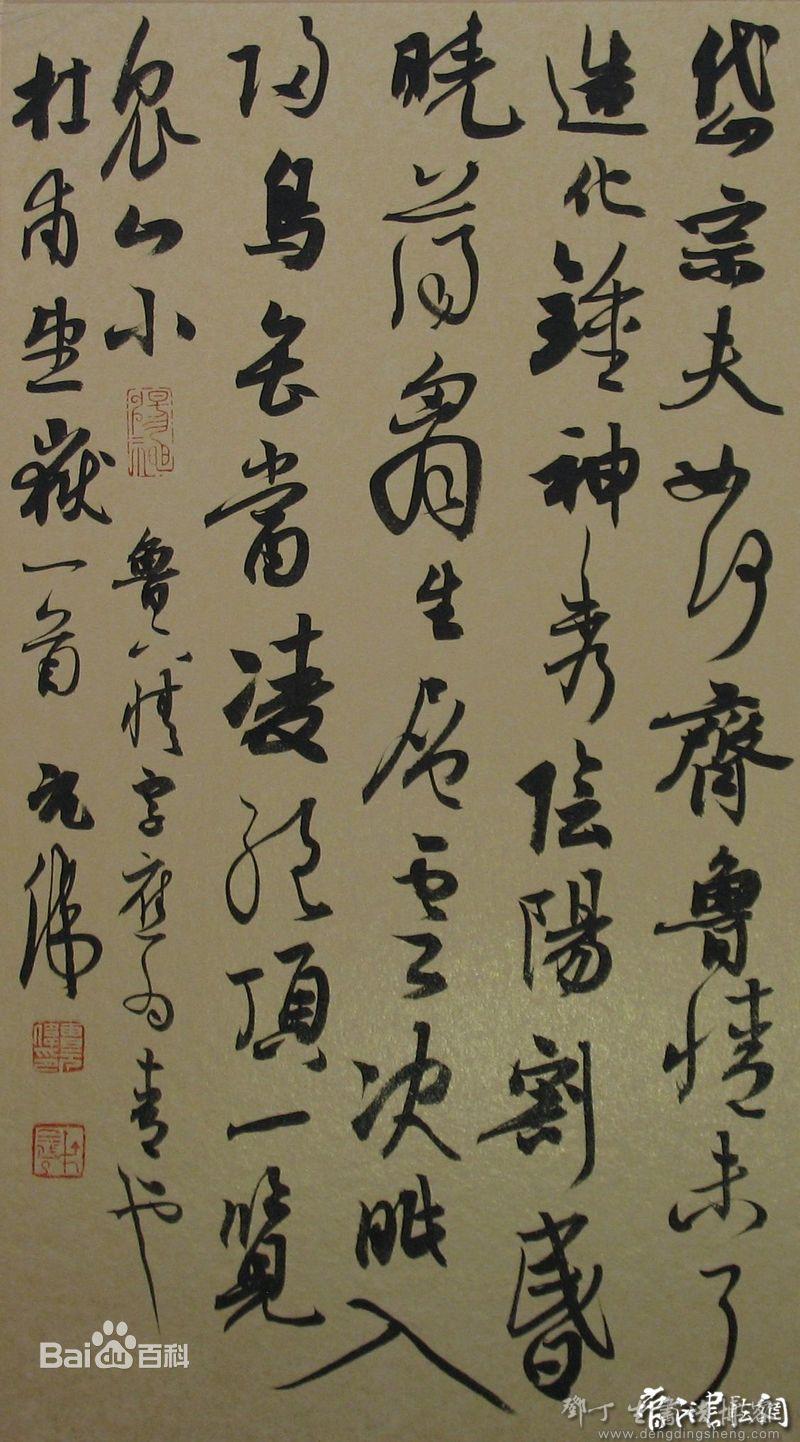 岱宗夫如何齊魯情未了
造化鍾神秀陰陽割昬
曉蕩胷生層雲决眦入
歸鳥會當凌絕頂一覽
衆山小
魯下情字應為青也
杜甫望嶽一首 元偉
Baidu百科
www.dengdingsheng.com